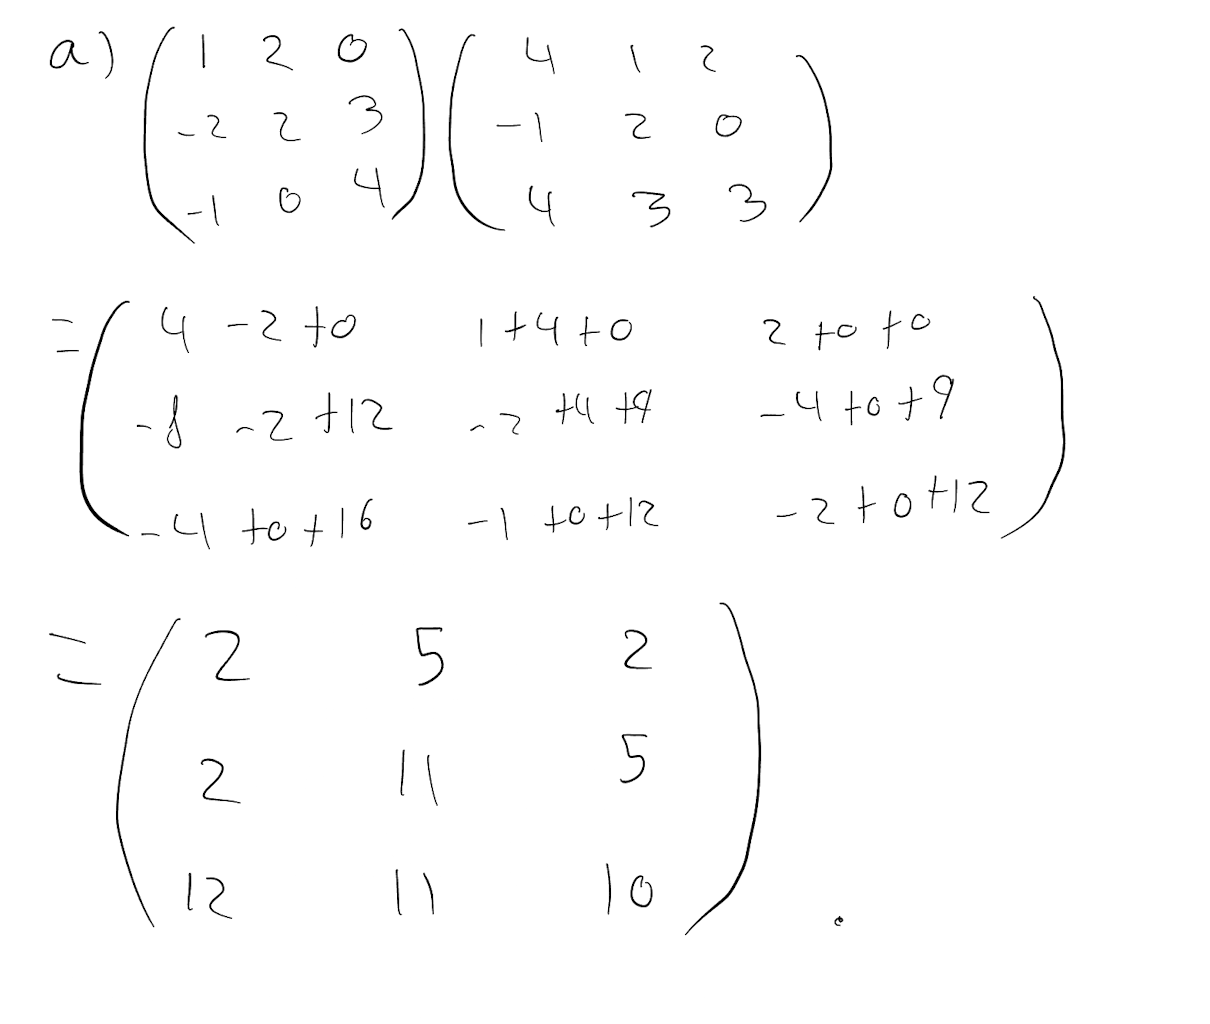 a) ( 1 2 0 ) ( 4 1 2 )
-2 2 3 -1 2 0
-1 0 4 4 3 3
= ( 4 -2 +0 1 +4 +0 2 +0 +0 )
-8 -2 +12 -2 +4 +9 -4 +0 +9
-4 +0 +16 -1 +0 +12 -2 +0 +12
= ( 2 5 2 )
2 11 5
12 11 10 .